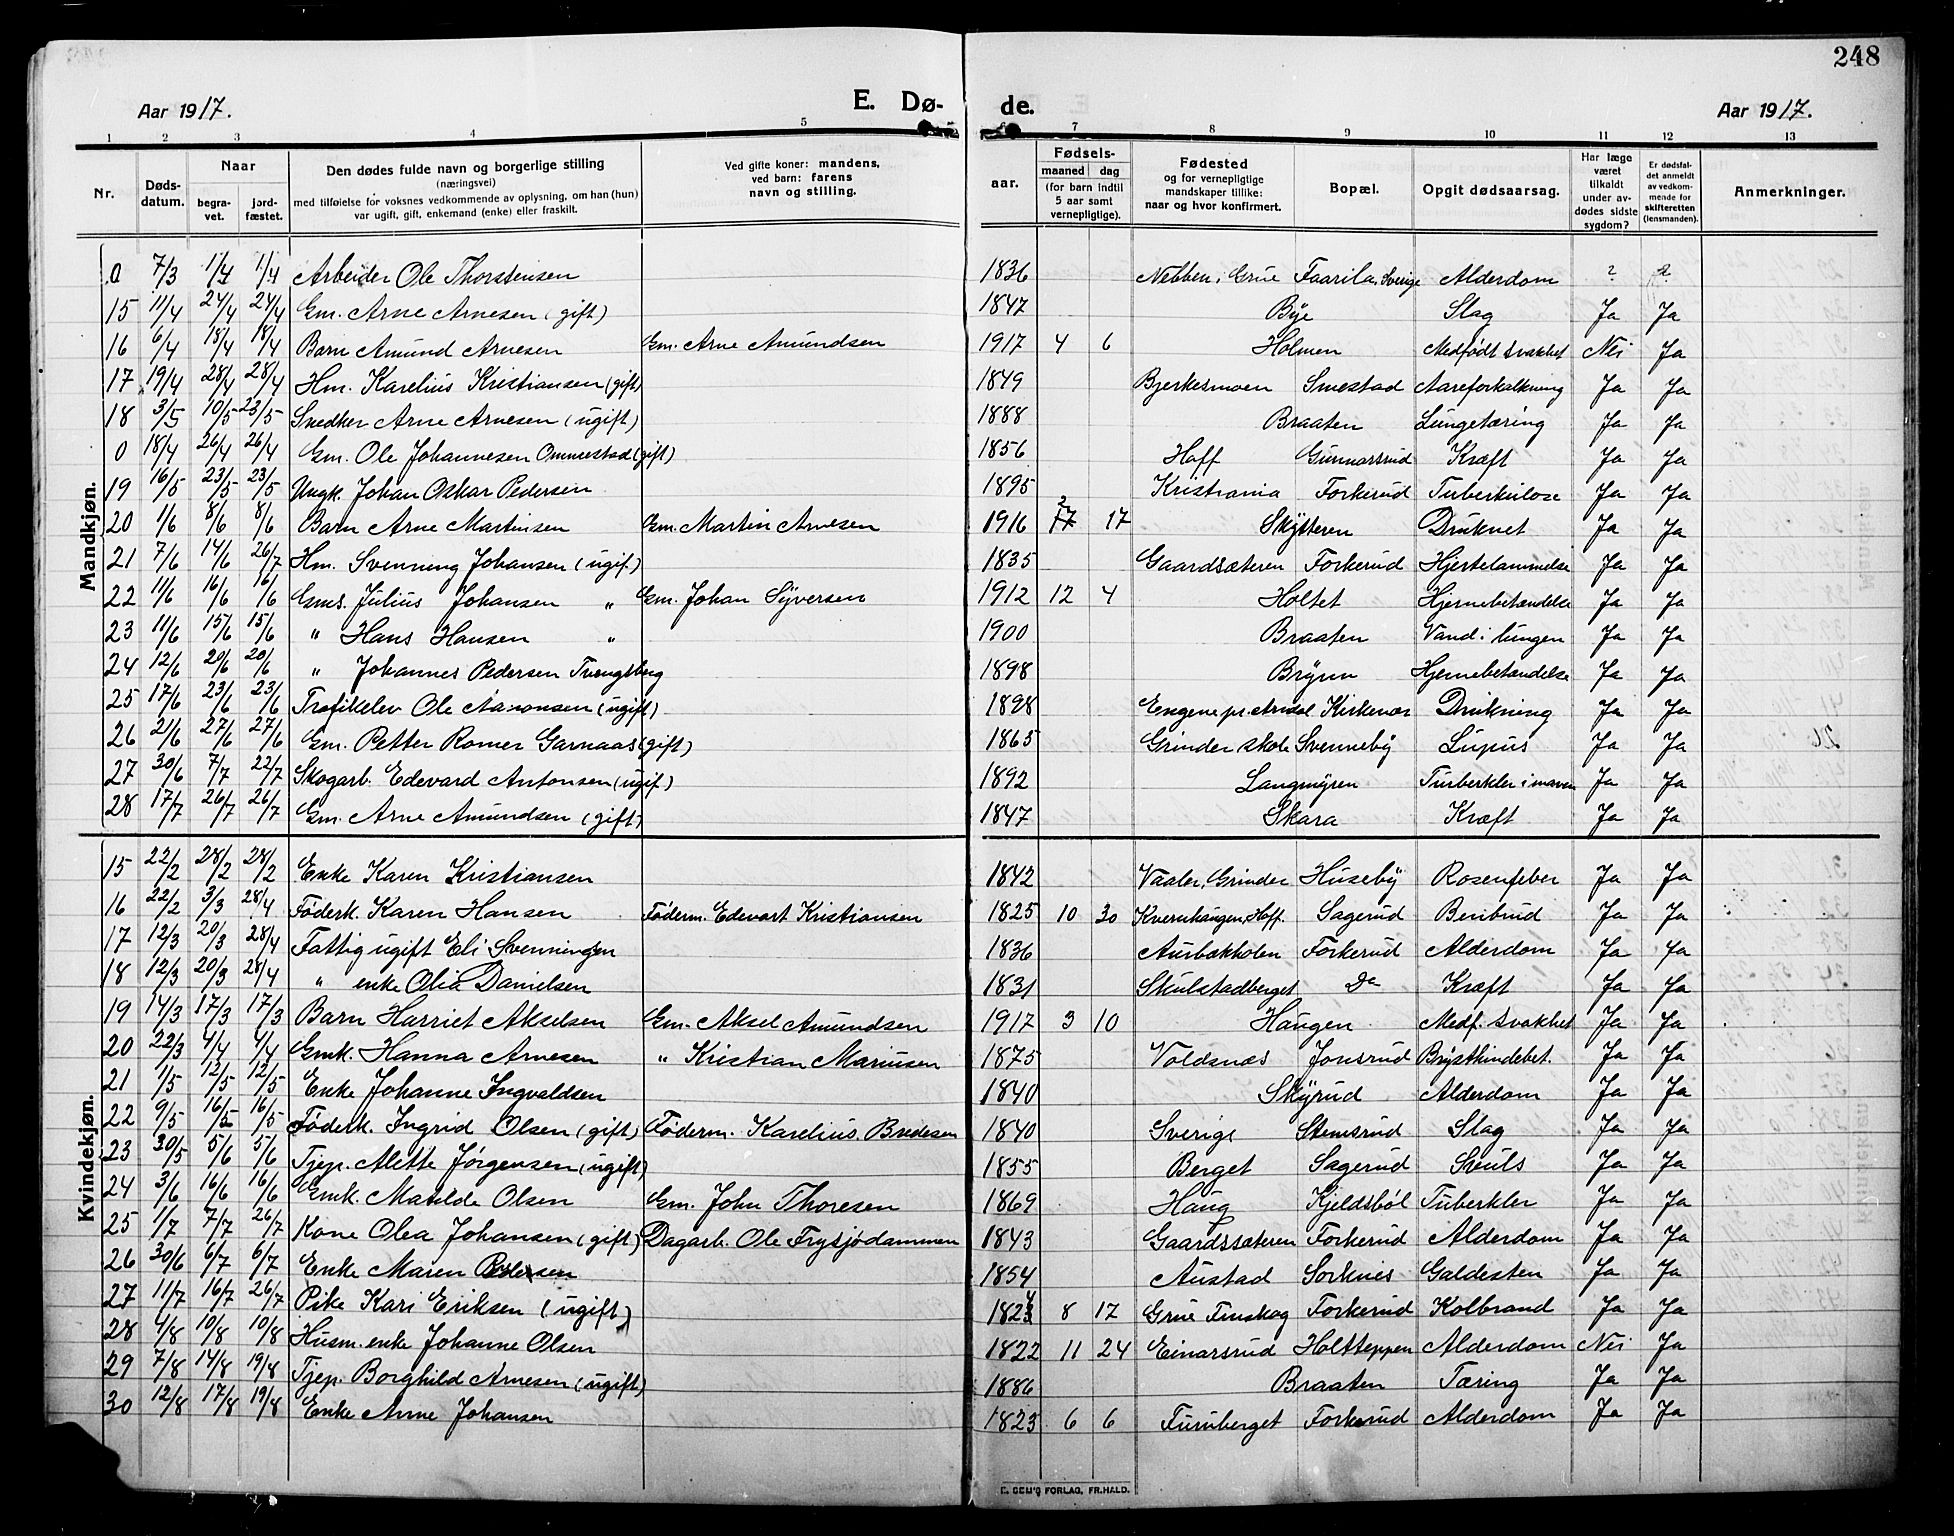 248
Aar 1917. E. Dø- de. Aar 1917.
1 2 3 4 5 7 8 9 10 11 12 13
Nr. Døds-datum. Naar begra-vet. jord-fæstet. Den dødes fulde navn og borgerlige stilling (næringsvei) med tilføielse for voksnes vedkommende av oplysning, om han (hun) var ugift, gift, enkemand (enke) eller fraskilt. Ved gifte koner: mandens, ved barn: farens navn og stilling. aar. Fødsels- maaned dag (for barn indtil 5 aar samt vernepligtige). Fødested og for vernepligtige mandskaper tillike: naar og hvor konfirmert. Bopæl. Opgit dødsaarsag. Har læge været tilkaldt under av-dødes sidste sygdom? Er dødsfal-det anmeldt av vedkom-mende for skifteretten (lensmanden). Anmerkninger.
Mandkjøn.
0 7/3 1/4 1/4 Arbeider Ole Thorstensen 1836 Nebben, Grue Faarila, Sverige Alderdom ? ?
15 11/4 24/4 24/4 Gm. Arne Arnesen (gift) 1847 Bye Slag Ja Ja
16 6/4 18/4 18/4 Barn Amund Arnesen Gm. Arne Amundsen 1917 4 6 Holmen Medfødt svakhet Nei Ja
17 19/4 28/4 28/4 Hm. Karelius Kristiansen (gift) 1849 Bjerkesmoen Smestad Aareforkalkning Ja Ja
18 3/5 10/5 23/5 Snedker Arne Arnesen (ugift) 1888 Braaten Lungetæring Ja Ja
0 18/4 26/4 26/4 Gm. Ole Johannesen Ommestad (gift) 1856 Hoff Gunnarsrud Kræft Ja Ja
19 16/5 23/5 23/5 Ungk. Johan Oskar Pedersen 1895 Kristiania Forkerud Tuberkulose Ja Ja
20 1/6 8/6 8/6 Barn Arne Martinsen Gm. Martin Arnesen 1916 2 17 Skytteren Druknet Ja Ja
21 7/6 14/6 26/7 Hm. Svenning Johansen (ugif.) 1835 Gaardsæteren Forkerud Hjertelammelse Ja Ja
22 11/6 16/6 16/6 Gms. Julius Johansen " Gm. Johan Syversen 1912 12 4 Holtet Hjernebetændelse Ja Ja
23 11/6 15/6 15/6 " Hans Hansen " 1900 Braaten Vand i lungen Ja Ja
24 12/6 20/6 20/6 " Johannes Pedersen Tvengsberg 1898 Bryen Hjernebetændelse Ja Ja
25 17/6 23/6 23/6 Trafikelev Ole Aaronsen (ugift) 1898 Engene pr. Arndal Kirkenær Drukning Ja Ja
26 21/6 27/6 27/6 Gm. Petter Romer Garnaas (gift) 1865 Grinder skole Svenneby Lupus Ja Ja
27 30/6 7/7 22/7 Skogarb. Edevard Antonsen (ugif.) 1892 Langmyren Tuberkler i maven Ja Ja
28 17/7 26/7 26/7 Gm. Arne Amundsen (gift) 1847 Skara Kræft Ja Ja
Kvindekjøn.
15 22/2 28/2 28/2 Enke Karen Kristiansen 1842 Vaaler, Grinder Huseby Rosenfeber Ja Ja
16 22/2 3/3 28/4 Føderk. Karen Hansen Føderm. Edevart Kristiansen 1825 10 30 Kvernhaugen, Hoff. Sagerud Benbrud Ja Ja
17 12/3 20/3 28/4 Fattig ugift Eli Svenningsen 1836 Aurbakholen Forkerud Alderdom Ja Ja
18 12/3 20/3 28/4 " enke Olia Danielsen 1831 Skulstadberget Do Kræft Ja Ja
19 14/3 17/3 17/3 Barn Harriet Akselsen Gm. Aksel Amundsen 1917 3 10 Haugen Medf. svakhet Ja Ja
20 22/3 4/4 4/4 Gmk. Hanna Arnesen " Kristian Mariusen 1875 Voldsnæs Jonsrud Brysthindebet. Ja Ja
21 1/5 12/5 12/5 Enke Johanne Ingvaldsen 1840 Skyrud Alderdom Ja Ja
22 9/5 16/5 16/5 Føderk. Ingrid Olsen (gift) Føderm. Karelius Bredesen 1840 Sverige Stemsrud Slag Ja Ja
23 30/5 5/6 5/6 Tjep. Alette Jørgensen (ugift) 1855 Berget Sagerud Svuls Ja Ja
24 3/6 16/6 16/6 Gmk. Matilde Olsen Gm. John Thoresen 1869 Haug Kjeldsbøl Tuberkler Ja Ja
25 1/7 7/7 26/7 Kone Olea Johansen (gift) Dagarb. Ole Frysjødammen 1843 Gaardssæteren Forkerud Alderdom Ja Ja
26 30/6 6/7 6/7 Enke Maren Pedersen 1854 Austad Sorknes Galdesten Ja Ja
27 11/7 16/7 26/7 Pike Kari Eriksen (ugift) 1824 8 17 Grue Finskog Forkerud Kolbrand Ja Ja
28 4/8 10/8 10/8 Husm. enke Johanne Olsen 1822 11 24 Einarsrud Holtteppen Alderdom Nei Ja
29 7/8 14/8 19/8 Tjep. Borghild Arnesen (ugift) 1886 Braaten Tæring Ja Ja
30 12/8 17/8 19/8 Enke Anne Johansen 1823 6 6 Furuberget Forkerud Alderdom Ja Ja
E. SEM'S FORLAG, FR.HALD.